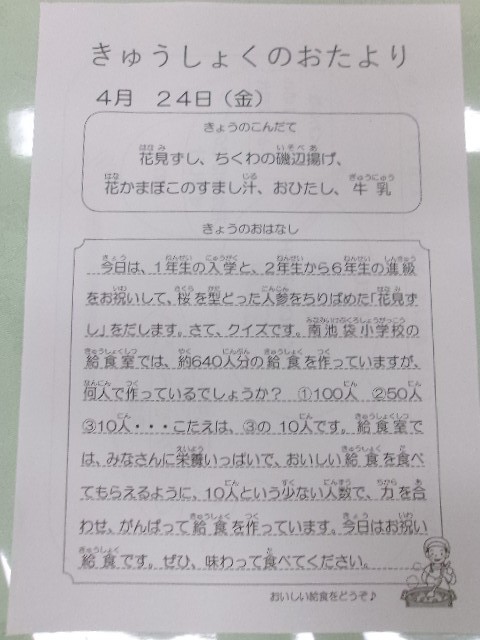 きゅうしょくのおたより
4月 24日(金)
きょうのこんだて
花見ずし、ちくわの磯辺揚げ、
花かまぼこのすまし汁、おひたし、牛乳
きょうのおはなし
今日は、1年生の入学と、2年生から6年生の進級
をお祝いして、桜を型どった人参をちりばめた「花見ず
し」をだします。さて、クイズです。南池袋小学校の
給食室では、約640人分の給食を作っていますが、
何人で作っているでしょうか? ①100人 ②50人
③10人・・・こたえは、③の 10人です。給食室で
は、みなさんに栄養いっぱいで、おいしい給食を食べ
てもらえるように、10人という少ない人数で、力を合
わせ、がんばって給食を作っています。今日はお祝い
給食です。ぜひ、味わって食べてください。
おいしい給食をどうぞ♪